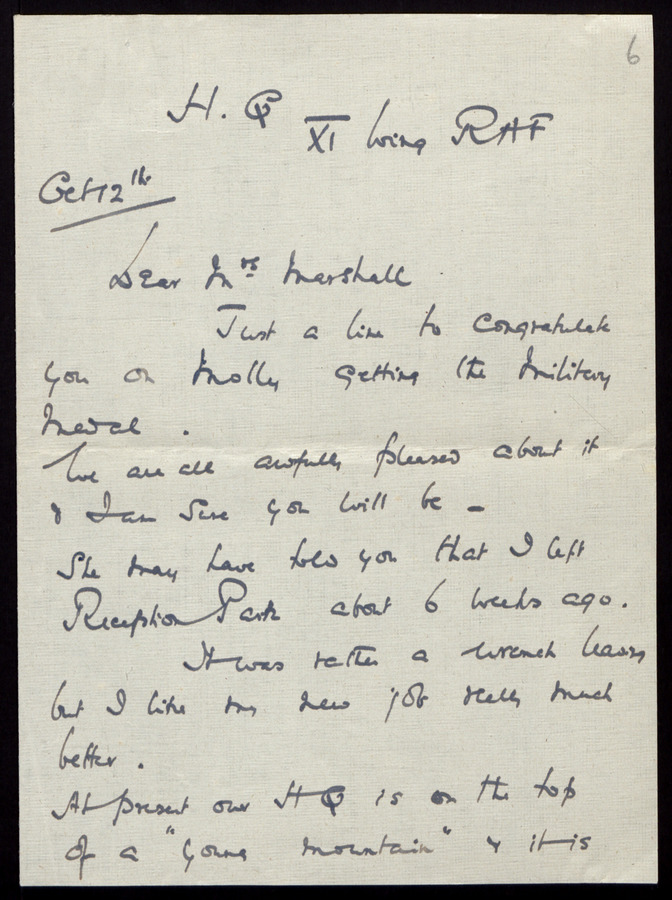 6
H. Q
XI Wing RAF
Oct 12th
Dear Mrs Marshall
Just a line to congratulate
you on Molly getting the Military
Medal.
We are all awfully pleased about it
& I am sure you will be -
She may have told you that I left
Reception Park about 6 weeks ago.
It was rather a wrench leaving
but I like my new job really much
better.
At present our HQ is on the top
of a "young mountain" & it is